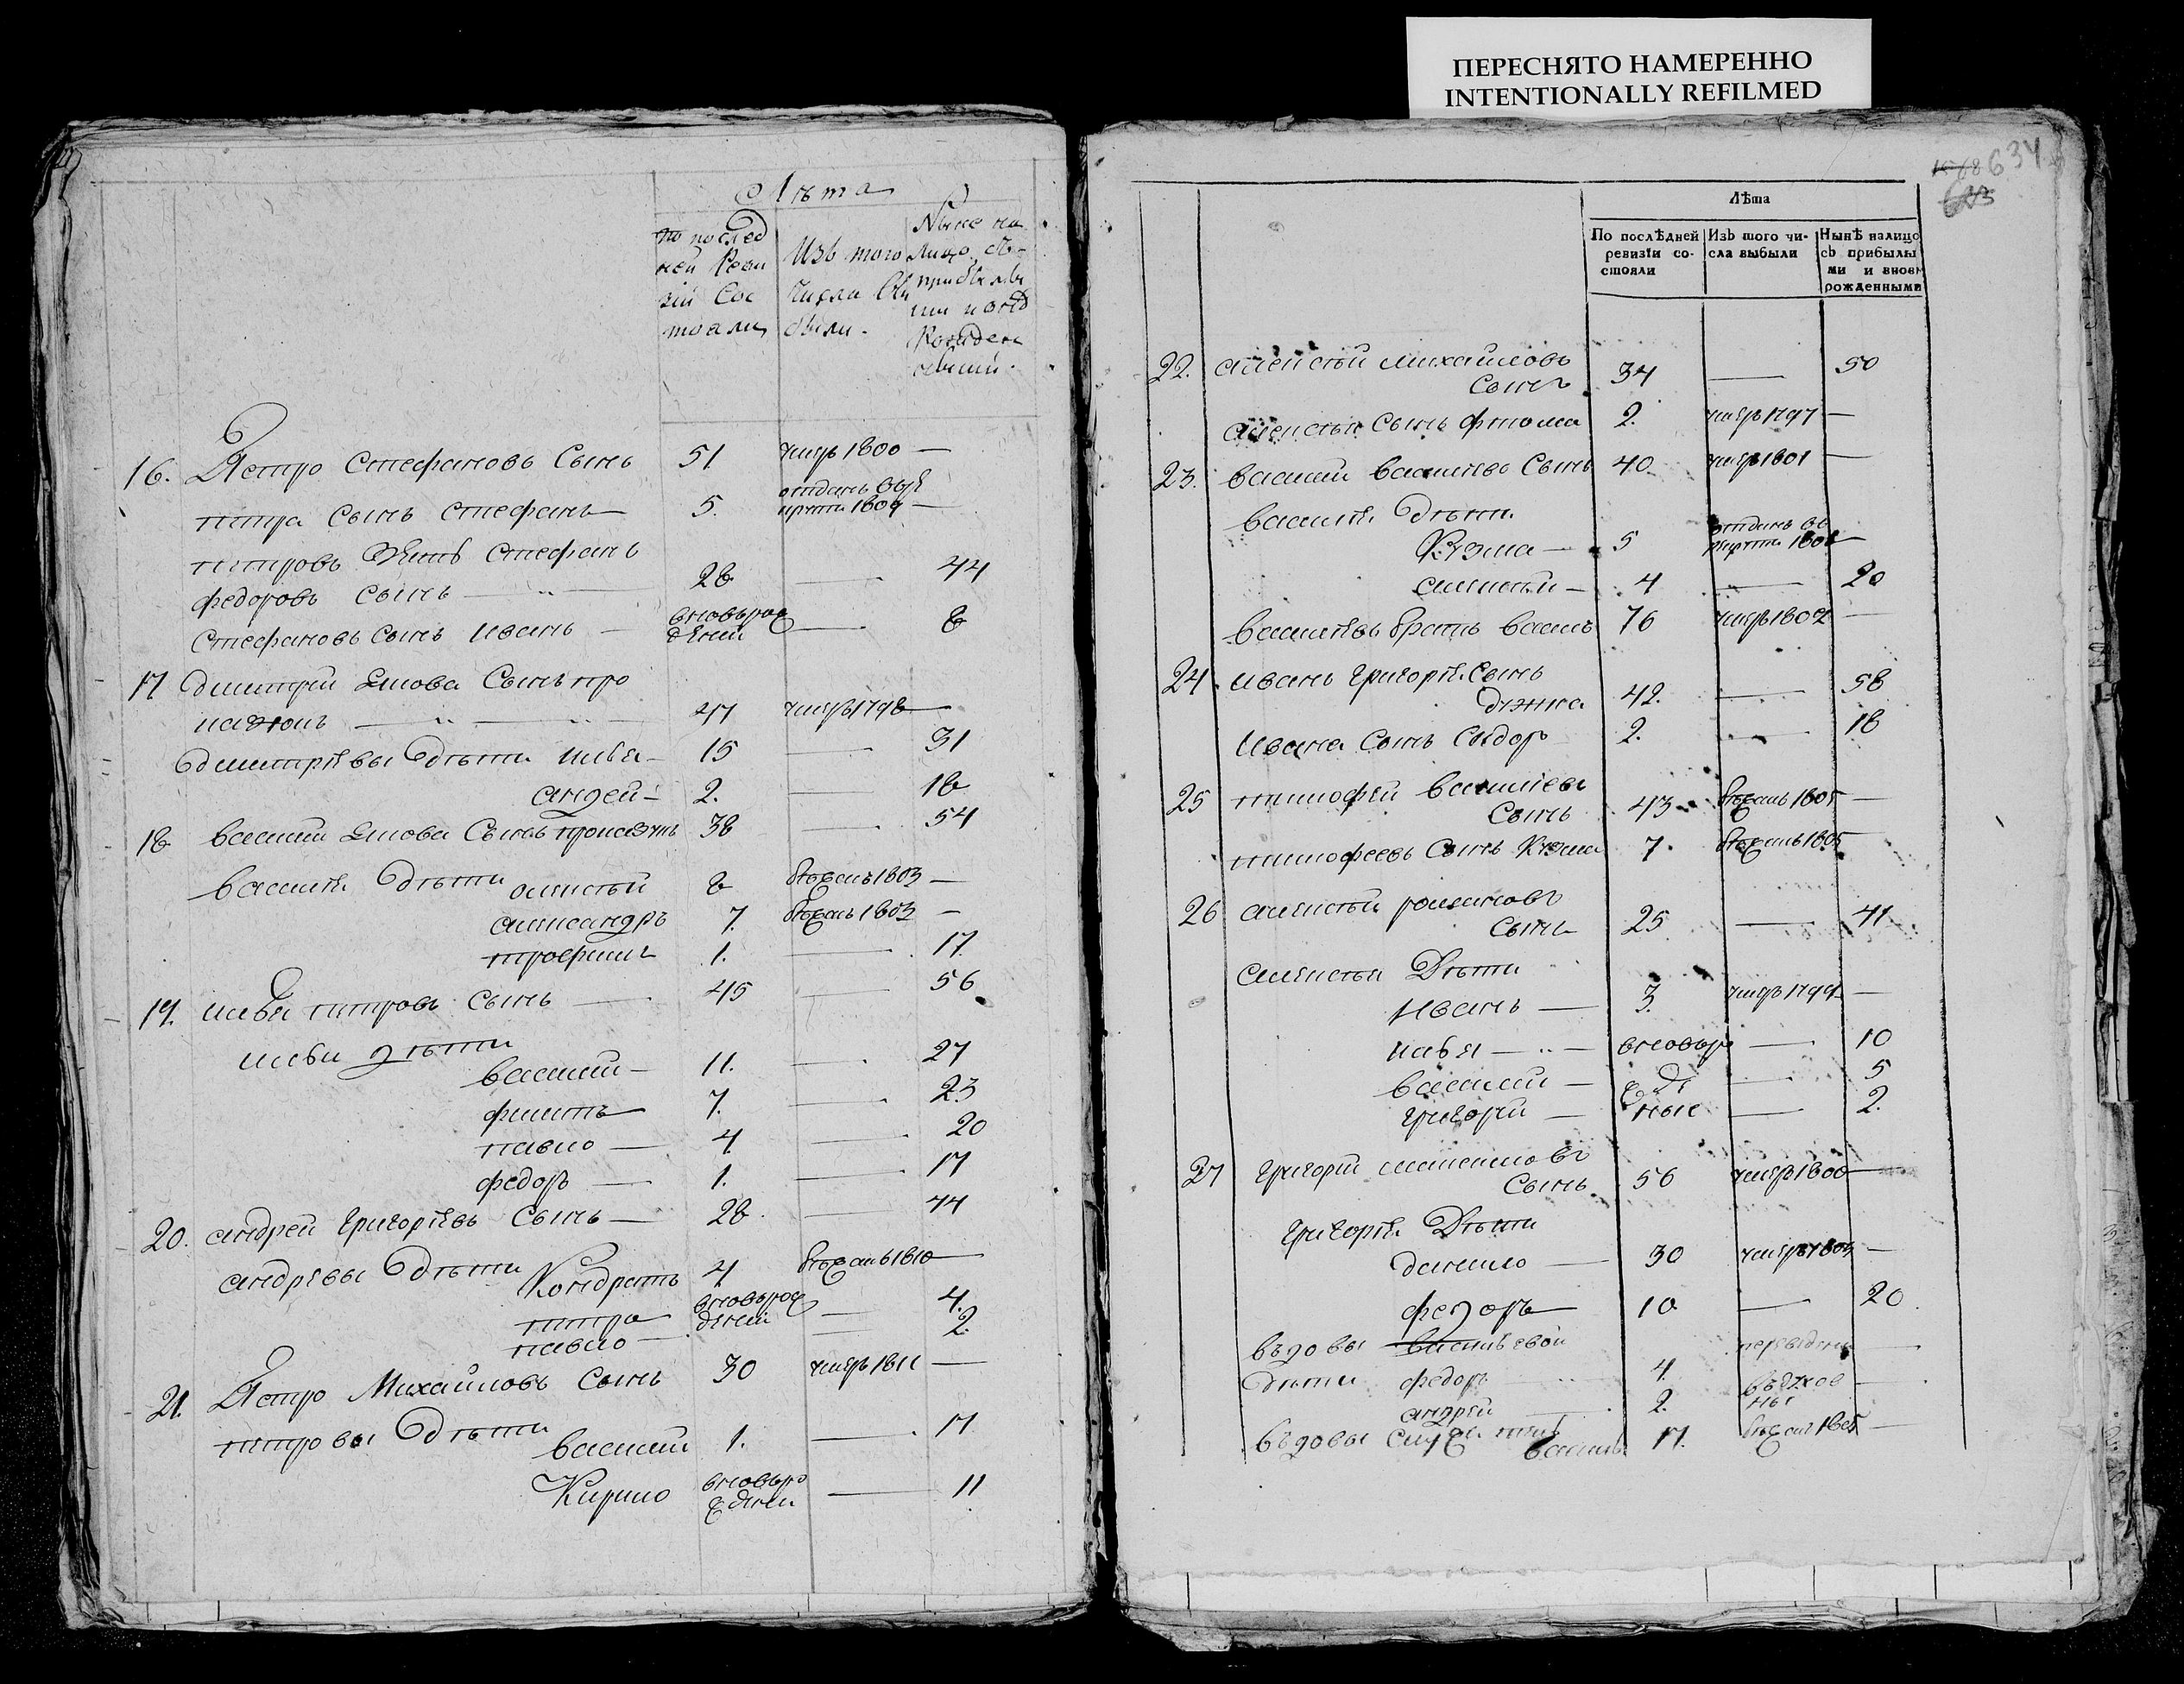 ПЕРЕСНЯТО НАМЕРЕННО
INTENTIONALLY REFILMED
Лѣта
по послед
ней Реви
зіи Сос
тоали
Изъ того
числа вы
были
Ныне на
лицо съ
прибылы
ми и вновь
Рожден
ными
16. Петро Стефановъ Сынъ 51 умръ 1800 —
петра Сынъ Стефанъ 5. отданъ въ рекруты 1809 —
петровъ зять Стефанъ
федоровъ Сынъ — 28 — 44
Стефановъ Сынъ Иванъ — вновьрож
деный — 8
17 дмитрий Сынъ
47 умръ 1798 —
дмитрѣвы дѣти илья — 15 — 31
андрей — 2. — 18
18 василий Сынъ 38 — 54
василя дѣти алексѣй 8 бѣжалъ 1803 —
александръ 7. бѣжалъ 1803 —
трофимъ 1. — 17.
19. илья петровъ Сынъ — 45 — 56
ильи дѣти
василий — 11. — 27
филипъ 7. — 23
павло — 4 — 20
федоръ — 1. — 17
20. андрей григорѣвъ Сынъ — 28 — 44
андрѣвы дѣти Кондратъ 4 бѣжалъ 1810 —
петро вновьрож — 4.
павло — деныи — 2.
21. Петро Михайловъ Сынъ 30 умръ 1811 —
петровы дѣти
василий 1. — 17
Кирило вновьро
жденыи — 11
634
Лѣта
По послѣдней
ревизіи со-
стояли
Изъ того чи-
сла выбыли
Нынѣ налицо
съ прибылы
ми и вновь
рожденными
22. алексѣй михайловъ
Сынъ 34 — 50
алексѣя Сынъ фтома 2. умръ 1797 —
23. василий василѣвъ Сынъ 40 умръ 1801 —
василя дѣти
Кузма — 5 отданъ въ
рекруты
алексѣй — 4 — 20
василѣвъ братъ 16 умръ —
24. иванъ григорѣ. Сынъ
42. — 58
ивана Сынъ Сидоръ 2. — 18
25 тимофѣй василиевъ
Сынъ 43 бѣжалъ 1805 —
тимофеевъ Сынъ Кузма 7. бѣжалъ 1805
26 алексѣй романовъ
Сынъ 25 — 41
алексѣя Дѣти
Иванъ — 3. умръ 1799 —
илья — вновьро — 10
василий — жде — 5
григорий — ные — 2.
27 григорий
Сынъ 56 умръ 1800 —
григорѣ. Дѣти
данило — 30 умръ 1803 —
федоръ 10 — 20
въдовы василѣевой переведены —
дѣти федоръ 4.
андрѣй — 2.
въдовы 17. бѣжалъ 1805 —